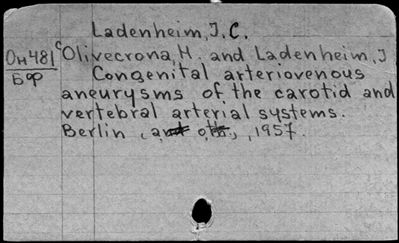 Ladenheim, J. C.
Он481 Olivecrona, H. and Ladenheim, J
Бф Congenital arteriovenous
aneurysms of the carotid and
vertebral arterial systems.
Berlin, 1957.